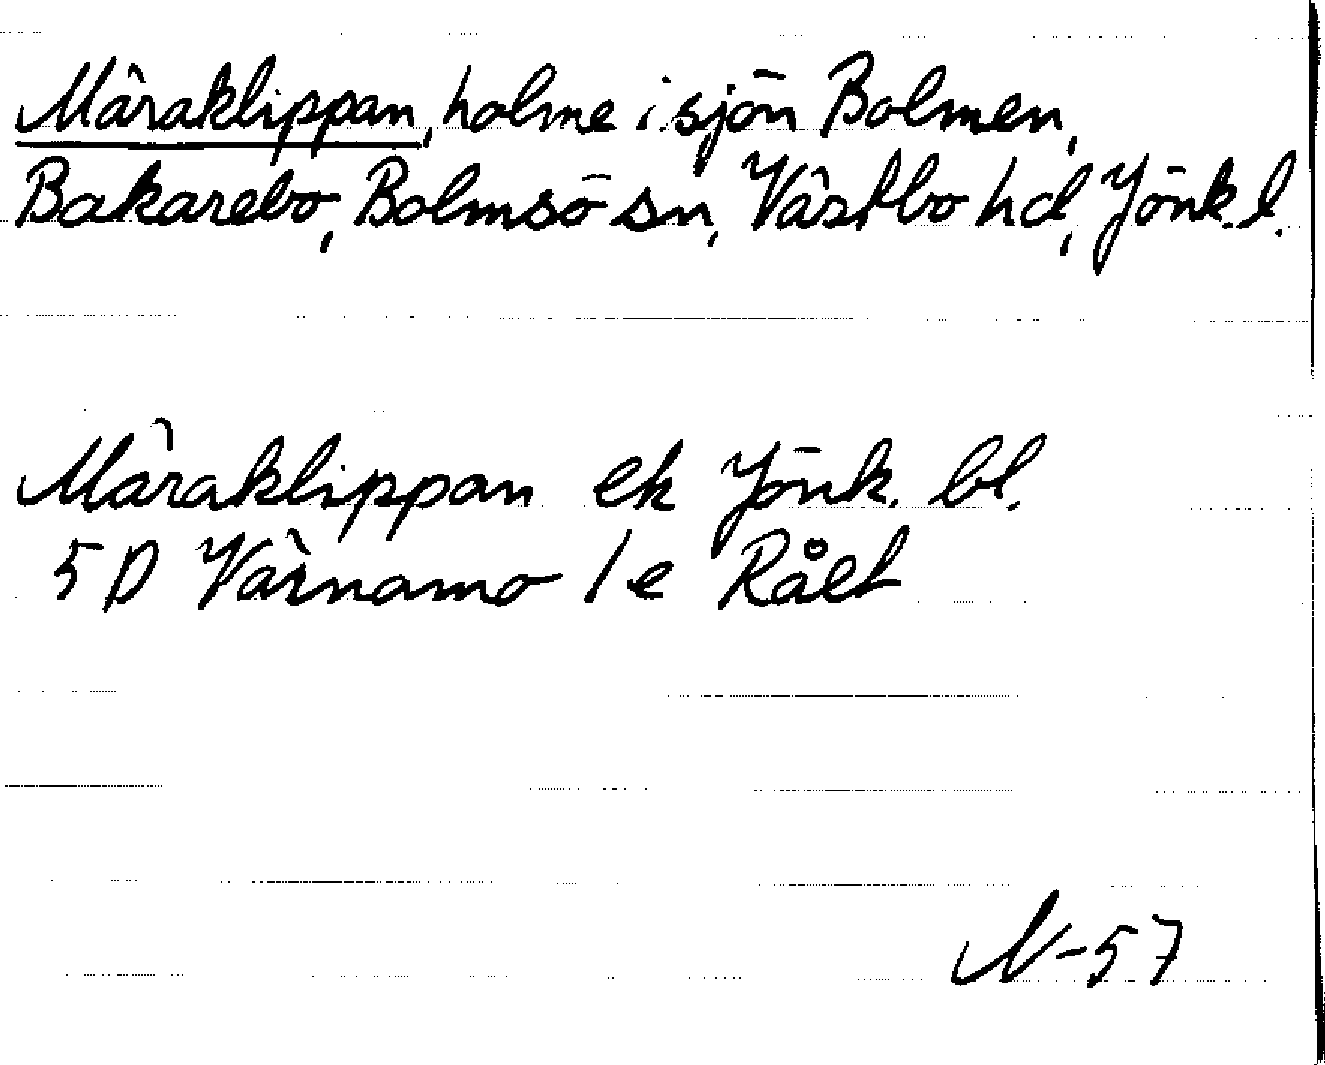 Märaklippan, holme i sjön Bolmen,
Bakarebo, Bolmsö sn, Västbo hd, Jönk. l.
Märaklippan ek Jönk. bl.
5 D Värnamo 1 e Rået
N-57